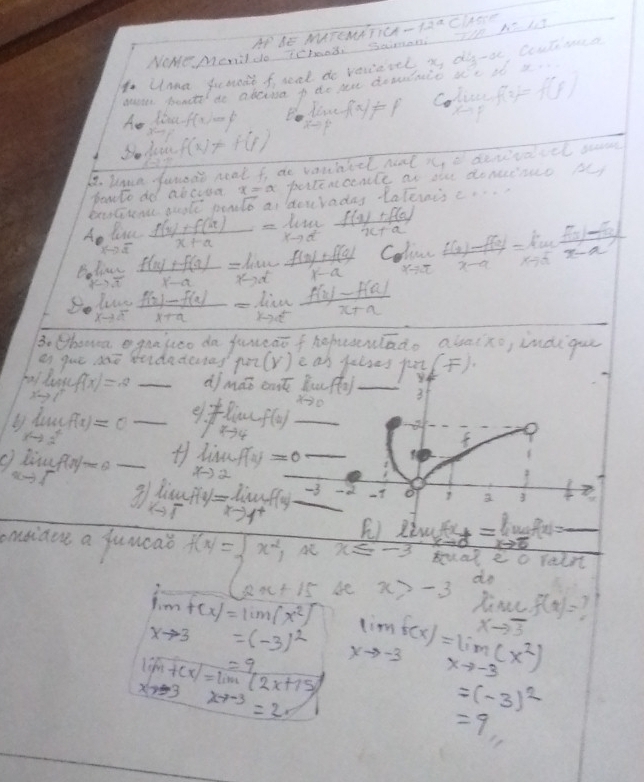 AP DE MATEMÁTICA - 12ª Classe
NOME
1. Uma função f, real de variável x, diz-se contínua
num ponto de abcisa p do seu domínio se e só x....
A. lim f(x) = p B. lim f(x) ≠ p C. lim f(x) = f(p)
x→p x→p x→p
D. lim f(x) ≠ f(p)
2. Uma função real f, de variável real x, é derivável num
ponto de abcisa x = a pertencente ao seu domínio se,
existirem neste ponto as derivadas laterais e ....
A. lim f(x)+f(a)/x+a = lim f(x)+f(a)/x+a
B. lim f(x)+f(a)/x-a = lim f(x)+f(a)/x-a C. lim f(x)-f(a)/x-a = lim f(x)-f(a)/x-a
D. lim f(x)-f(a)/x+a = lim f(x)-f(a)/x+a
3. Observa o gráfico da função f representado abaixo, indique
as que são verdadeiras por (V) e as falsas por (F).
lim f(x) = d) não existe lim f(x)
x→0
b) lim f(x) = 0 e) ∄ lim f(x)
x→2⁺ x→4
c) lim f(x) = f) lim f(x) = 0
x→2
g) lim f(x) = lim f(x)
h) lim f(x) = lim f(x) =
3
-3 -2 -1 0 1 2 3
f
considere a função f(x) = { x², se x ≤ -3 qual é o valor
2x + 15 se x > -3 do
lim f(x) = ?
lim f(x) = lim (x²)
x→-3 = (-3)²
= 9
lim f(x) = lim (2x+15)
x→-3 x→-3
= 2.
lim f(x) = lim (x²)
x→-3 x→-3
= (-3)²
= 9,,